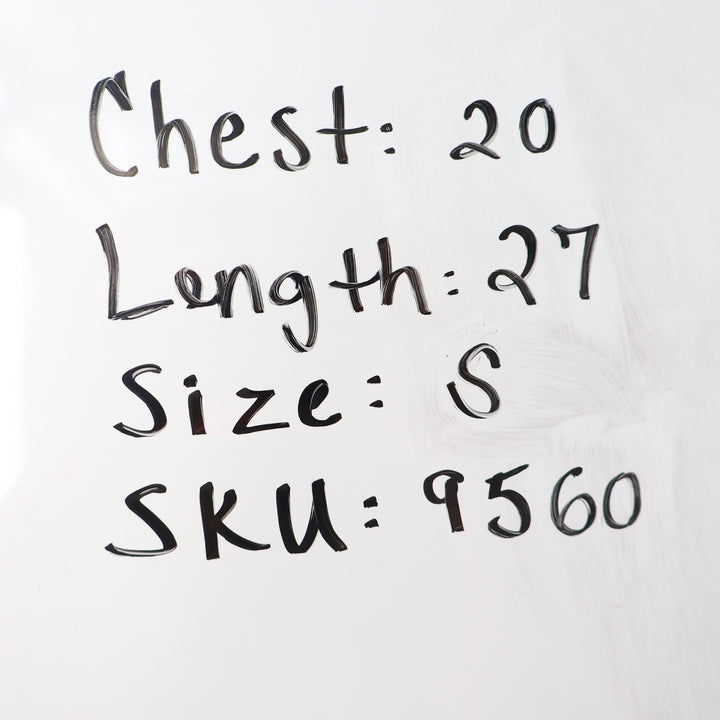 Chest: 20
Length: 27
Size: S
SKU: 9560